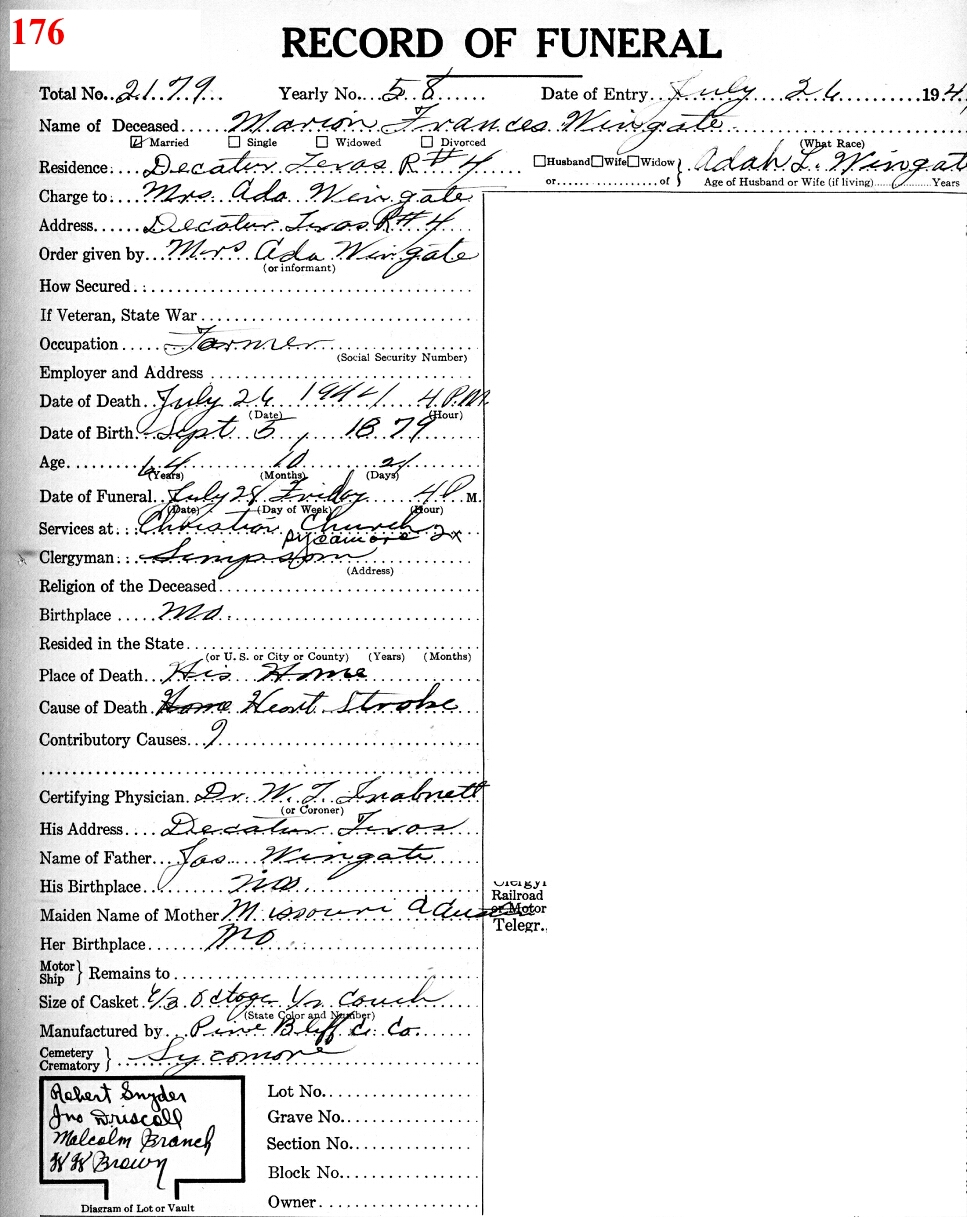 176
RECORD OF FUNERAL
Total No. 2179 Yearly No. 58 Date of Entry July 26 194
Name of Deceased Marion Frances Wingate
☑ Married ☐ Single ☐ Widowed ☐ Divorced (What Race)
Residence: Decatur Texas R#4 ☐Husband ☐Wife ☐Widow } Adah L. Wingat
or of Age of Husband or Wife (if living) Years
Charge to Mrs. Ada Wingate
Address Decatur Texas R#4
Order given by Mrs Ada Wingate
(or informant)
How Secured
If Veteran, State War
Occupation Farmer
(Social Security Number)
Employer and Address
Date of Death July 26 1944 4 P.M.
(Date) (Hour)
Date of Birth Sept 5, 1879
Age 64 10 21
(Years) (Months) (Days)
Date of Funeral July 28 Friday 4 P. M.
(Date) (Day of Week) (Hour)
Services at: Christian Church
Sycamore
Clergyman: Simpson
(Address)
Religion of the Deceased
Birthplace Mo.
Resided in the State
(or U. S. or City or County) (Years) (Months)
Place of Death His Home
Cause of Death Home Heart Stroke
Contributory Causes ?
Certifying Physician Dr. W. T. Inabnett
(or Coroner)
His Address Decatur Texas
Name of Father Jas Wingate
His Birthplace Mo.
Clergy
Railroad
Maiden Name of Mother Missouri or Motor
Telegr.
Her Birthplace Mo
Motor Ship } Remains to
Size of Casket 6/3 Octago 1/2 Couch
(State Color and Number)
Manufactured by Pine Bluff C. Co.
Cemetery Crematory } Sycamore
Robert Snyder
Jno Driscall
Malcolm Branch
W W Brown
Diagram of Lot or Vault
Lot No.
Grave No.
Section No.
Block No.
Owner